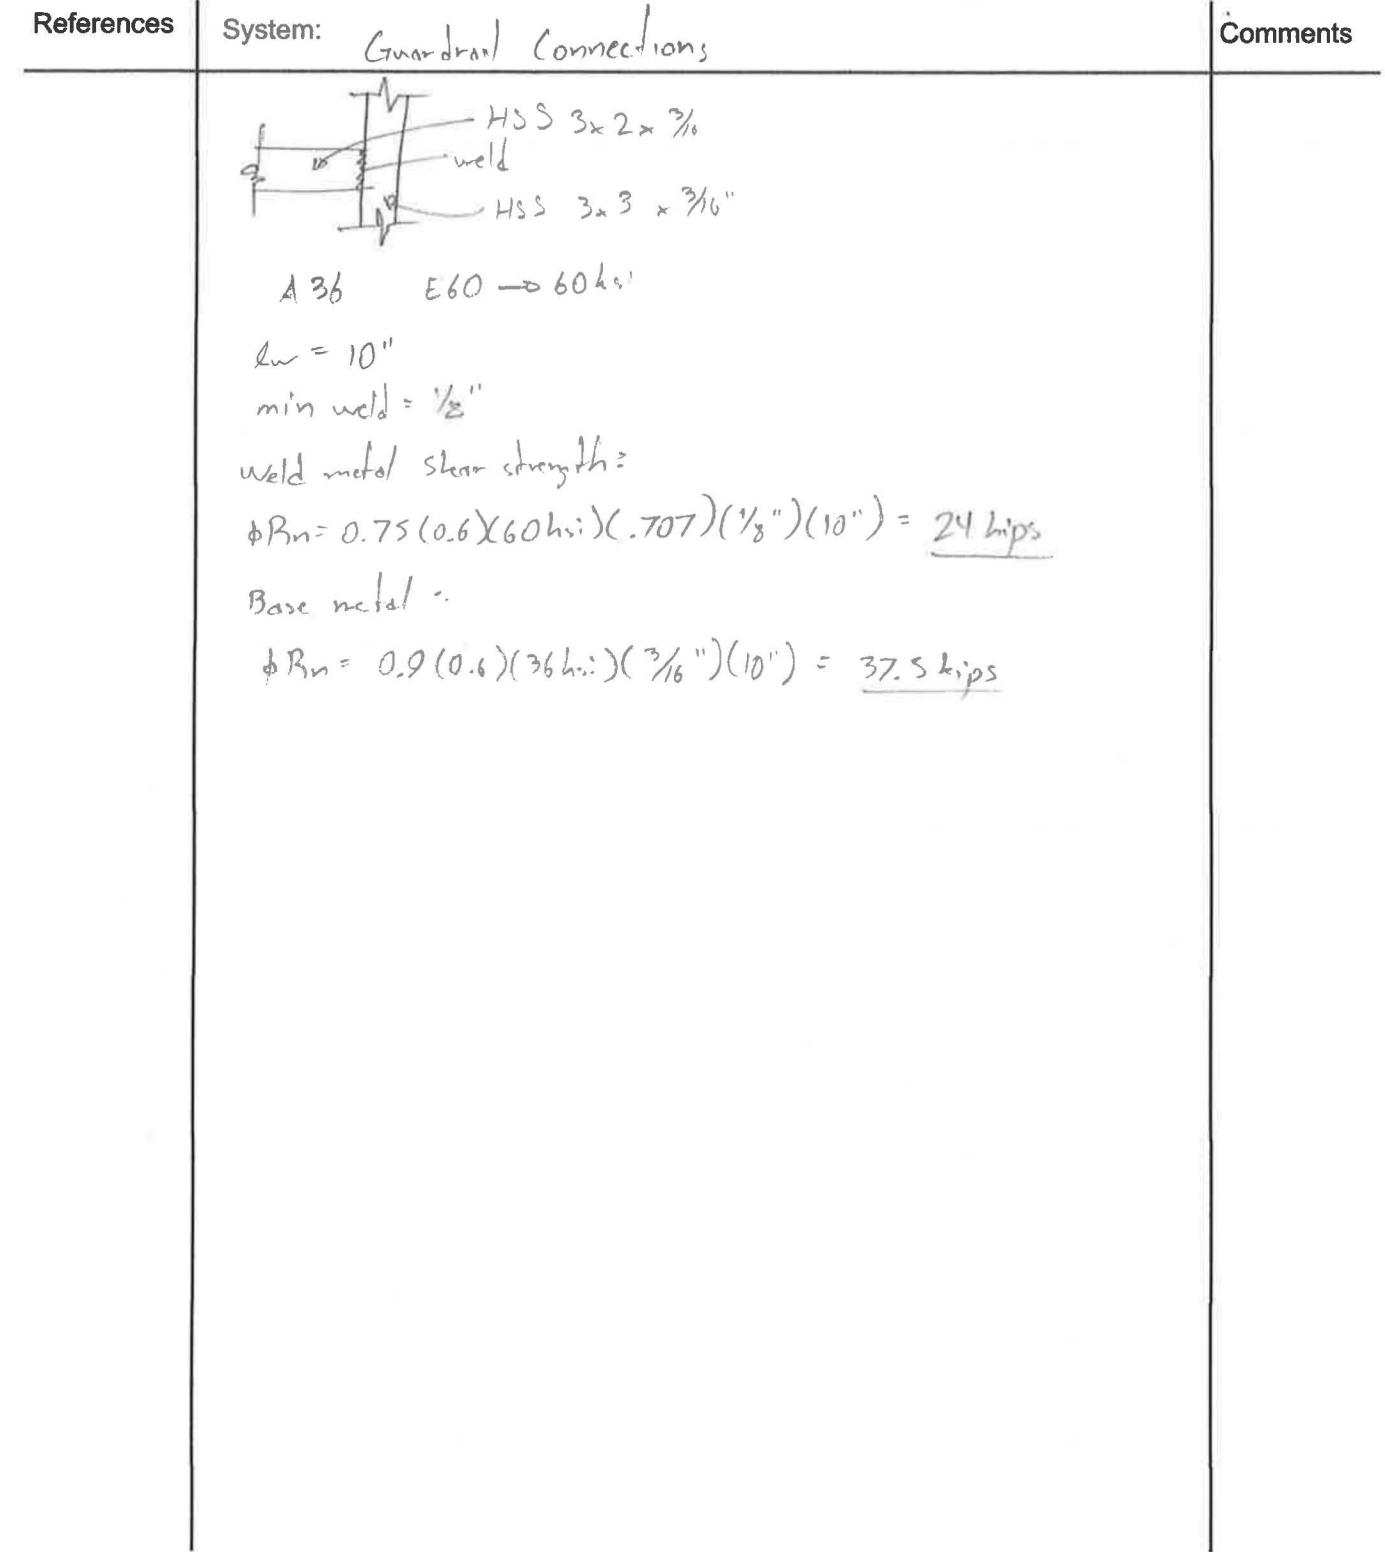 References
System: Guardrail Connections
Comments
HSS 3x2x 3/16
weld
HSS 3x3 x 3/16"
A36 E60 → 60ksi
lw = 10"
min weld = 1/8"
Weld metal shear strength:
ϕRn= 0.75(0.6)(60ksi)(.707)(1/8")(10") = 24 kips
Base metal :
ϕRn= 0.9(0.6)(36ksi)(3/16")(10") = 37.5 kips